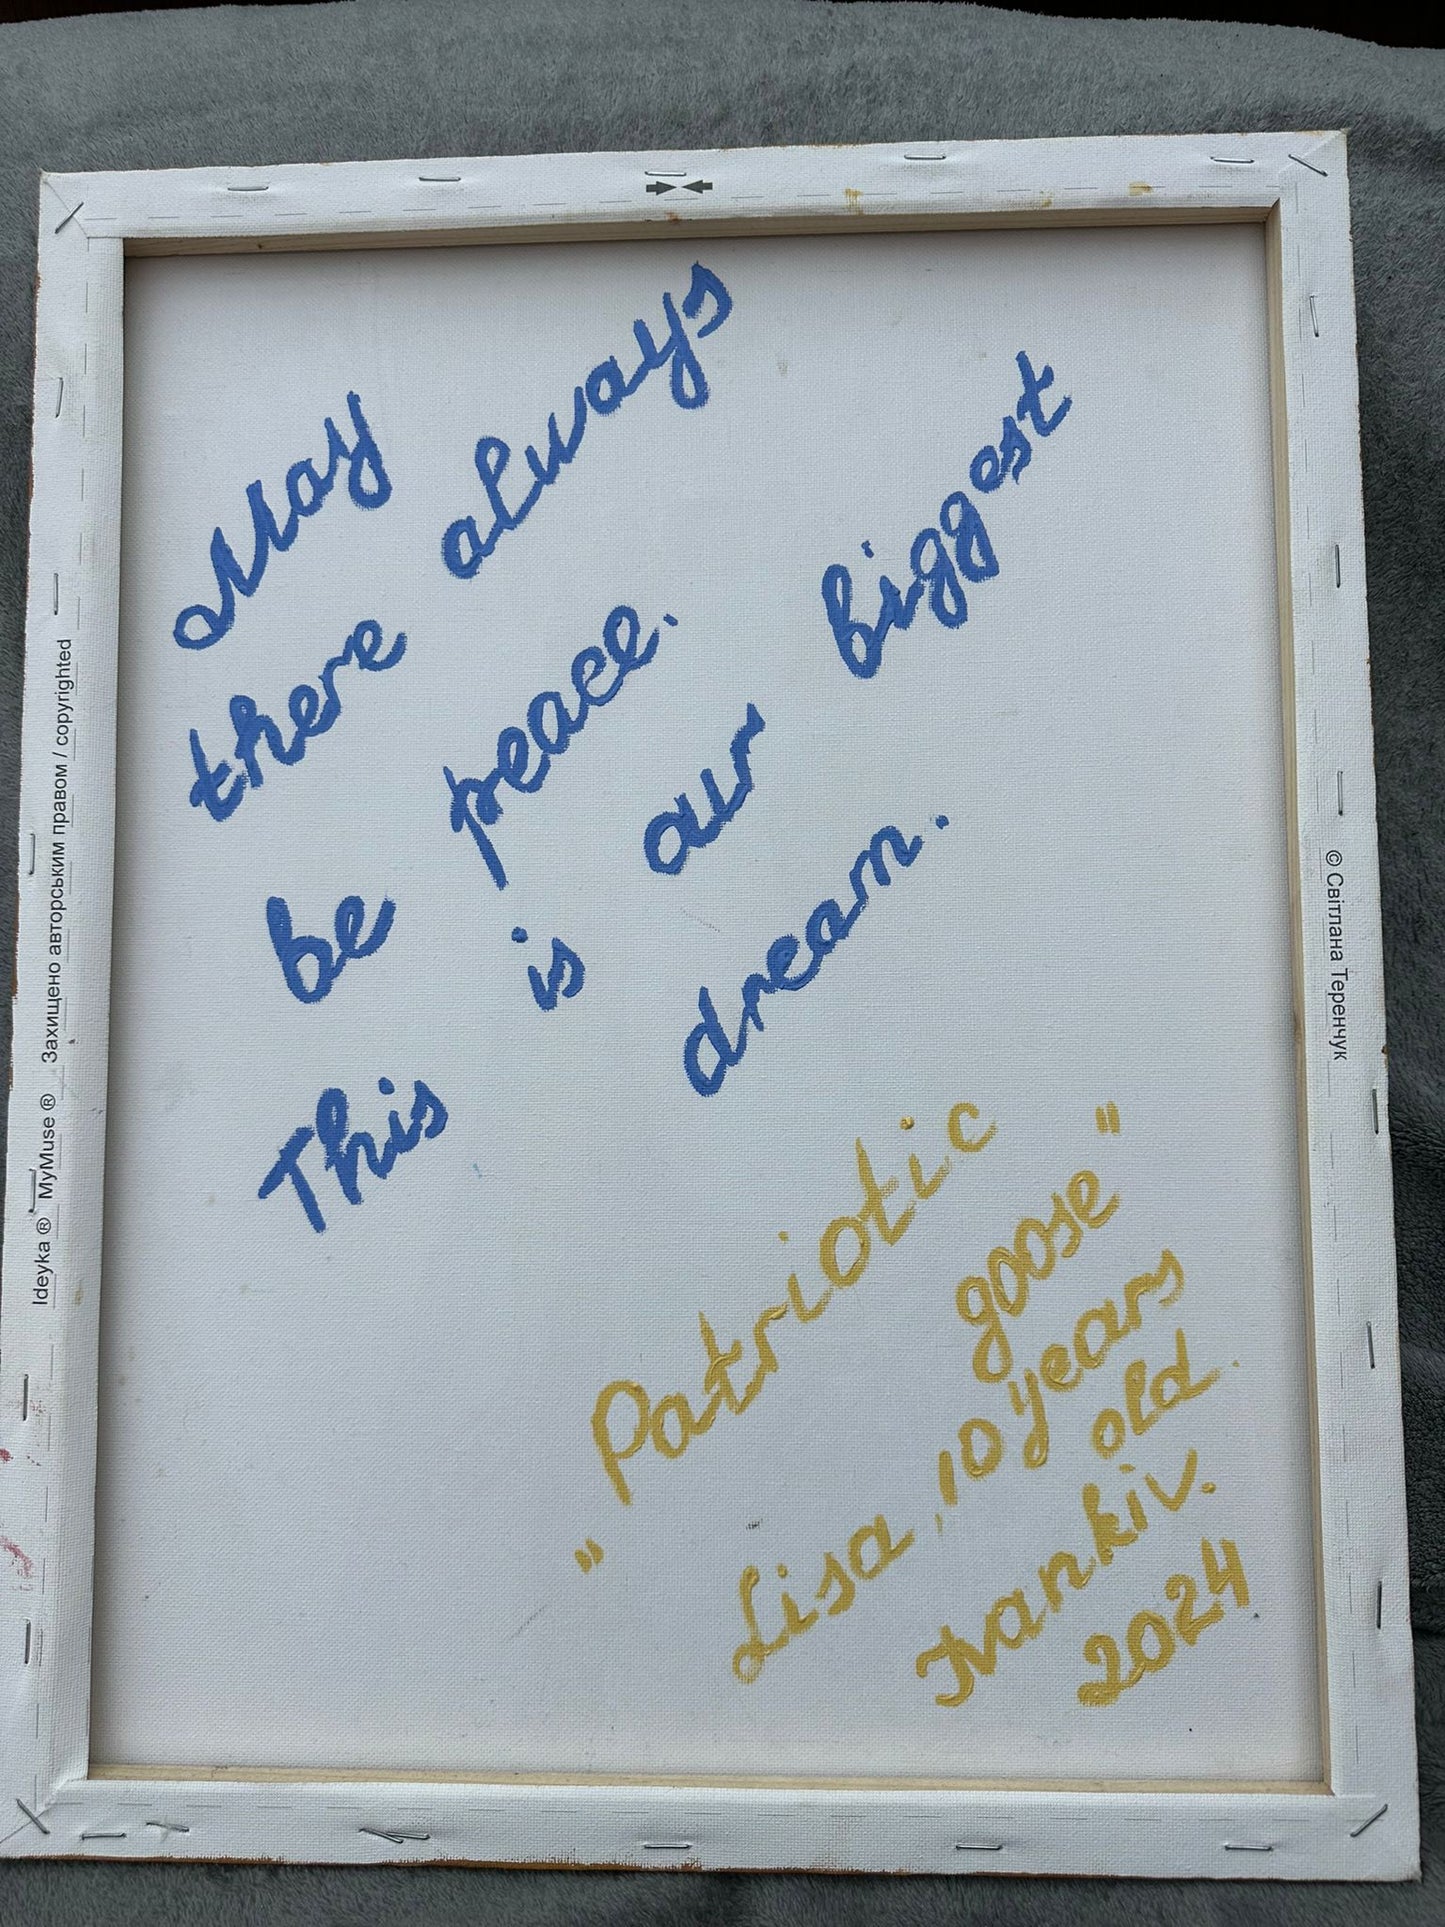 May
there always
be peace.
This is our biggest
dream.
"Patriotic
goose"
Lisa, 10 years
old.
Ivankiv.
2024
Ideyka ® MyMuse ® Захищено авторським правом / copyrighted
© Світлана Теренчук